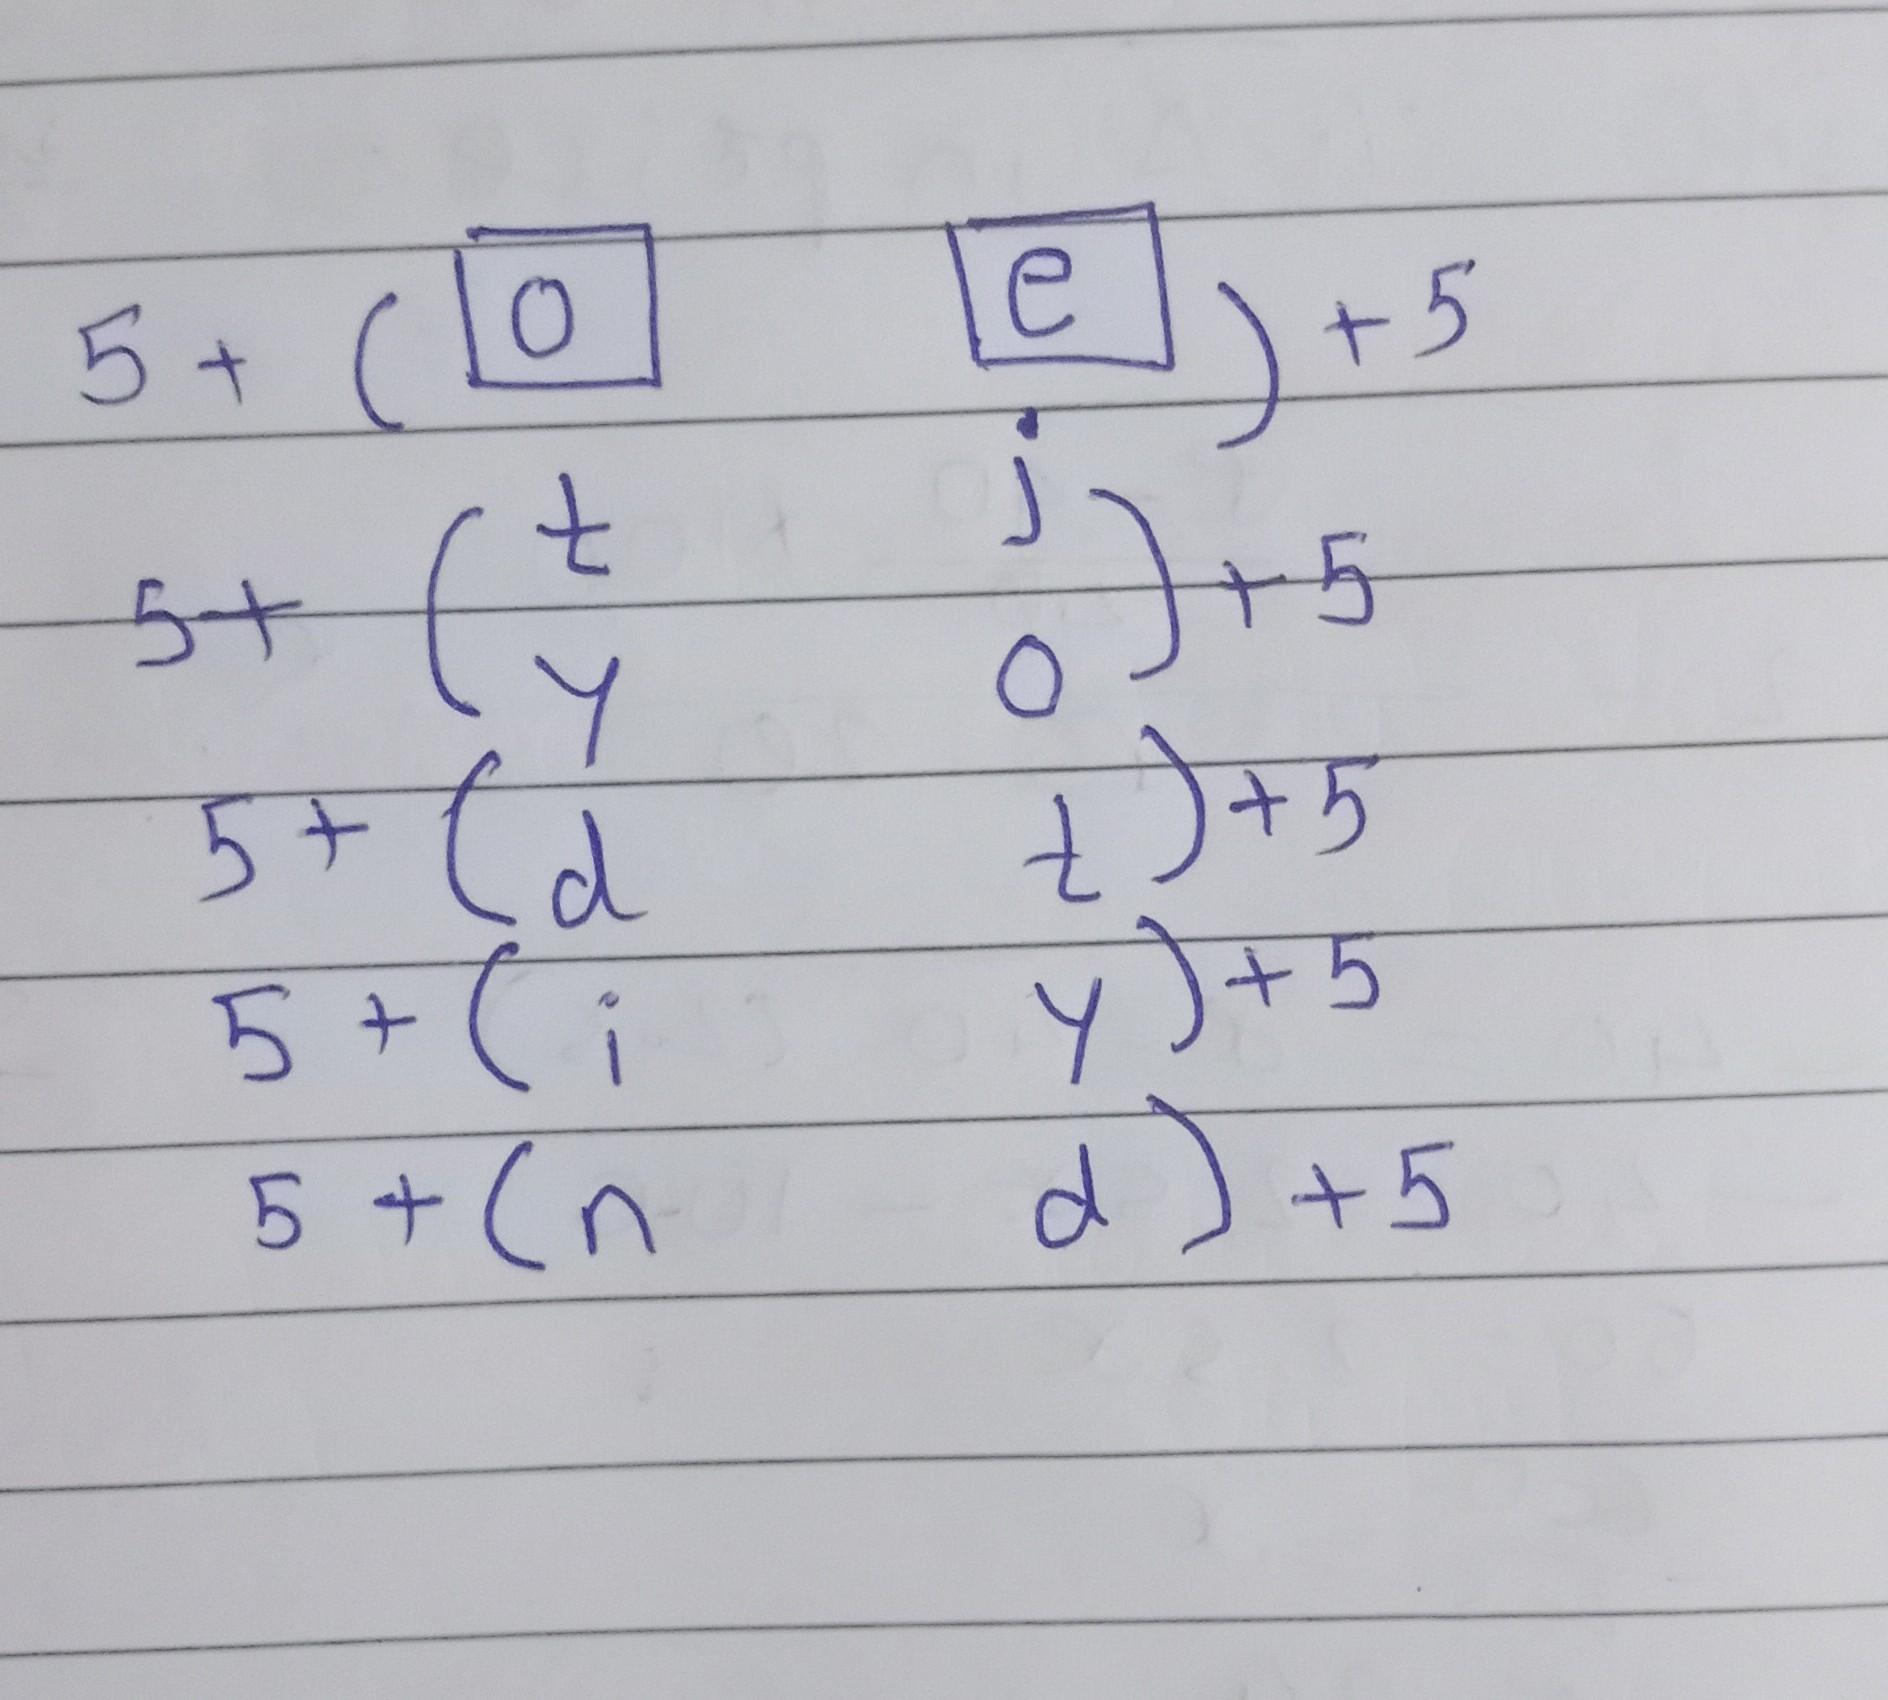 5 + ( o e ) + 5
t j
5 + ( ) + 5
y o
5 + ( d t ) + 5
5 + ( i y ) + 5
5 + ( n d ) + 5